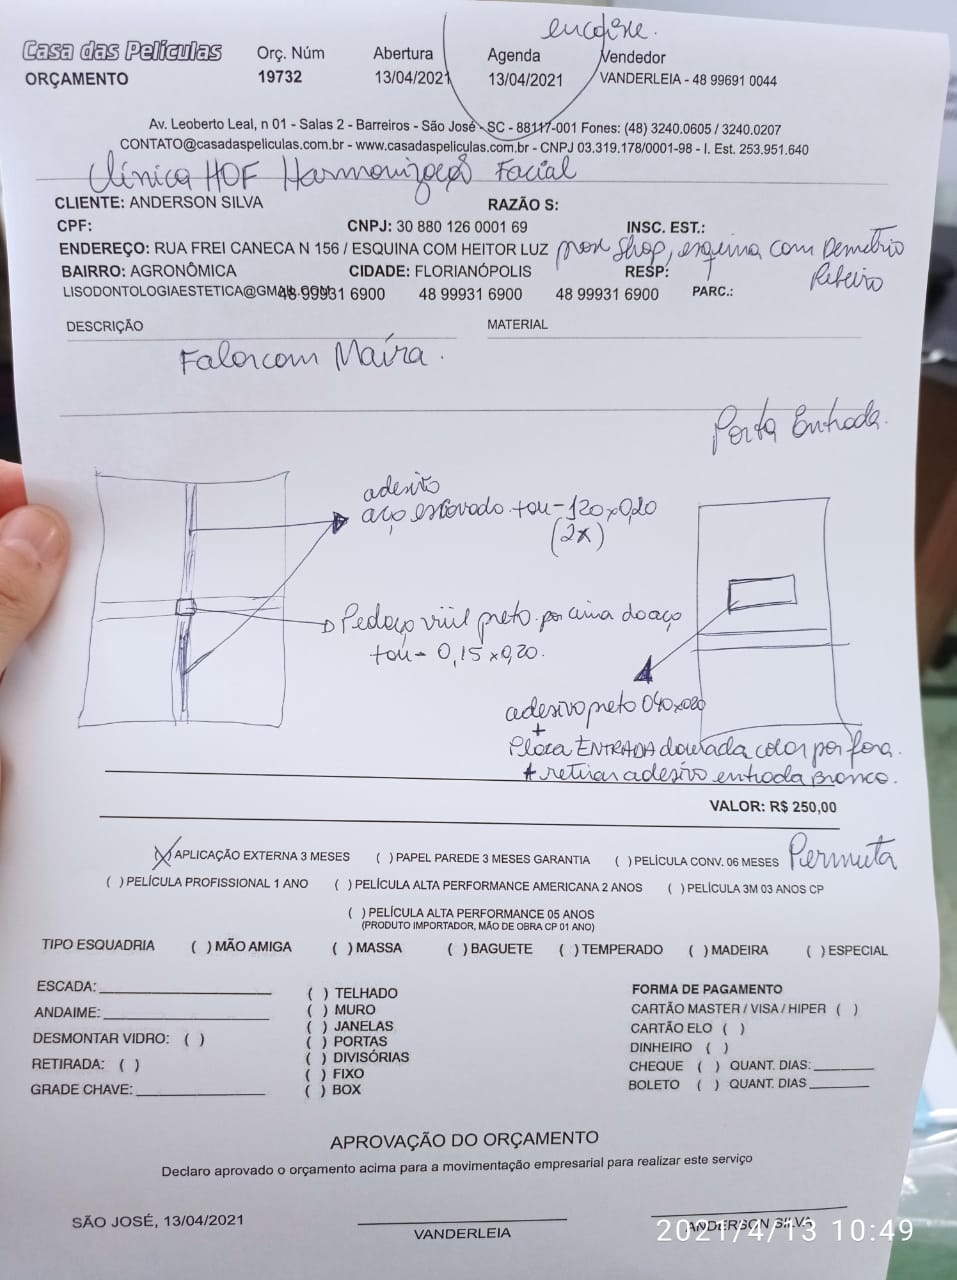 encaixe.
Casa das Películas Orç. Núm Abertura Agenda Vendedor
ORÇAMENTO 19732 13/04/2021 13/04/2021 VANDERLEIA - 48 99691 0044
Av. Leoberto Leal, n 01 - Salas 2 - Barreiros - São José - SC - 88117-001 Fones: (48) 3240.0605 / 3240.0207
CONTATO@casadaspeliculas.com.br - www.casadaspeliculas.com.br - CNPJ 03.319.178/0001-98 - I. Est. 253.951.640
Clínica HOF Harmonização Facial
CLIENTE: ANDERSON SILVA RAZÃO S:
CPF: CNPJ: 30 880 126 0001 69 INSC. EST.:
ENDEREÇO: RUA FREI CANECA N 156 / ESQUINA COM HEITOR LUZ Shop, esquina com Demetrio
Ribeiro
BAIRRO: AGRONÔMICA CIDADE: FLORIANÓPOLIS RESP:
LISODONTOLOGIAESTETICA@GMAIL.COM 48 99931 6900 48 99931 6900 48 99931 6900 PARC.:
DESCRIÇÃO MATERIAL
Falar com Maíra.
Porta Entrada.
adesivo
aço escovado tam - 120x0,20
(2x)
Pedaço vinil preto por cima do aço
tam - 0,15x0,20.
adesivo preto 040x020
+
Placa ENTRADA dourada colar por fora.
+ retirar adesivo entrada Branco.
VALOR: R$ 250,00
Permuta
(X) APLICAÇÃO EXTERNA 3 MESES ( ) PAPEL PAREDE 3 MESES GARANTIA ( ) PELÍCULA CONV. 06 MESES
( ) PELÍCULA PROFISSIONAL 1 ANO ( ) PELÍCULA ALTA PERFORMANCE AMERICANA 2 ANOS ( ) PELÍCULA 3M 03 ANOS CP
( ) PELÍCULA ALTA PERFORMANCE 05 ANOS
(PRODUTO IMPORTADOR, MÃO DE OBRA CP 01 ANO)
TIPO ESQUADRIA ( ) MÃO AMIGA ( ) MASSA ( ) BAGUETE ( ) TEMPERADO ( ) MADEIRA ( ) ESPECIAL
ESCADA:
ANDAIME:
DESMONTAR VIDRO: ( )
RETIRADA: ( )
GRADE CHAVE:
( ) TELHADO
( ) MURO
( ) JANELAS
( ) PORTAS
( ) DIVISÓRIAS
( ) FIXO
( ) BOX
FORMA DE PAGAMENTO
CARTÃO MASTER / VISA / HIPER ( )
CARTÃO ELO ( )
DINHEIRO ( )
CHEQUE ( ) QUANT. DIAS:
BOLETO ( ) QUANT. DIAS
APROVAÇÃO DO ORÇAMENTO
Declaro aprovado o orçamento acima para a movimentação empresarial para realizar este serviço
SÃO JOSÉ, 13/04/2021
VANDERLEIA
ANDERSON SILVA
2021/4/13 10:49